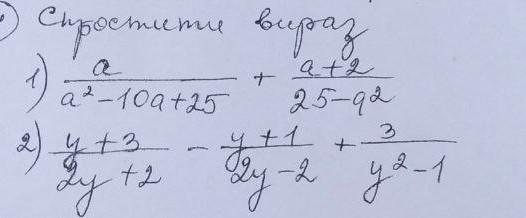 Спростити вираз
1) a/(a²-10a+25) + (a+2)/(25-a²)
2) (y+3)/(2y+2) - (y+1)/(2y-2) + 3/(y²-1)